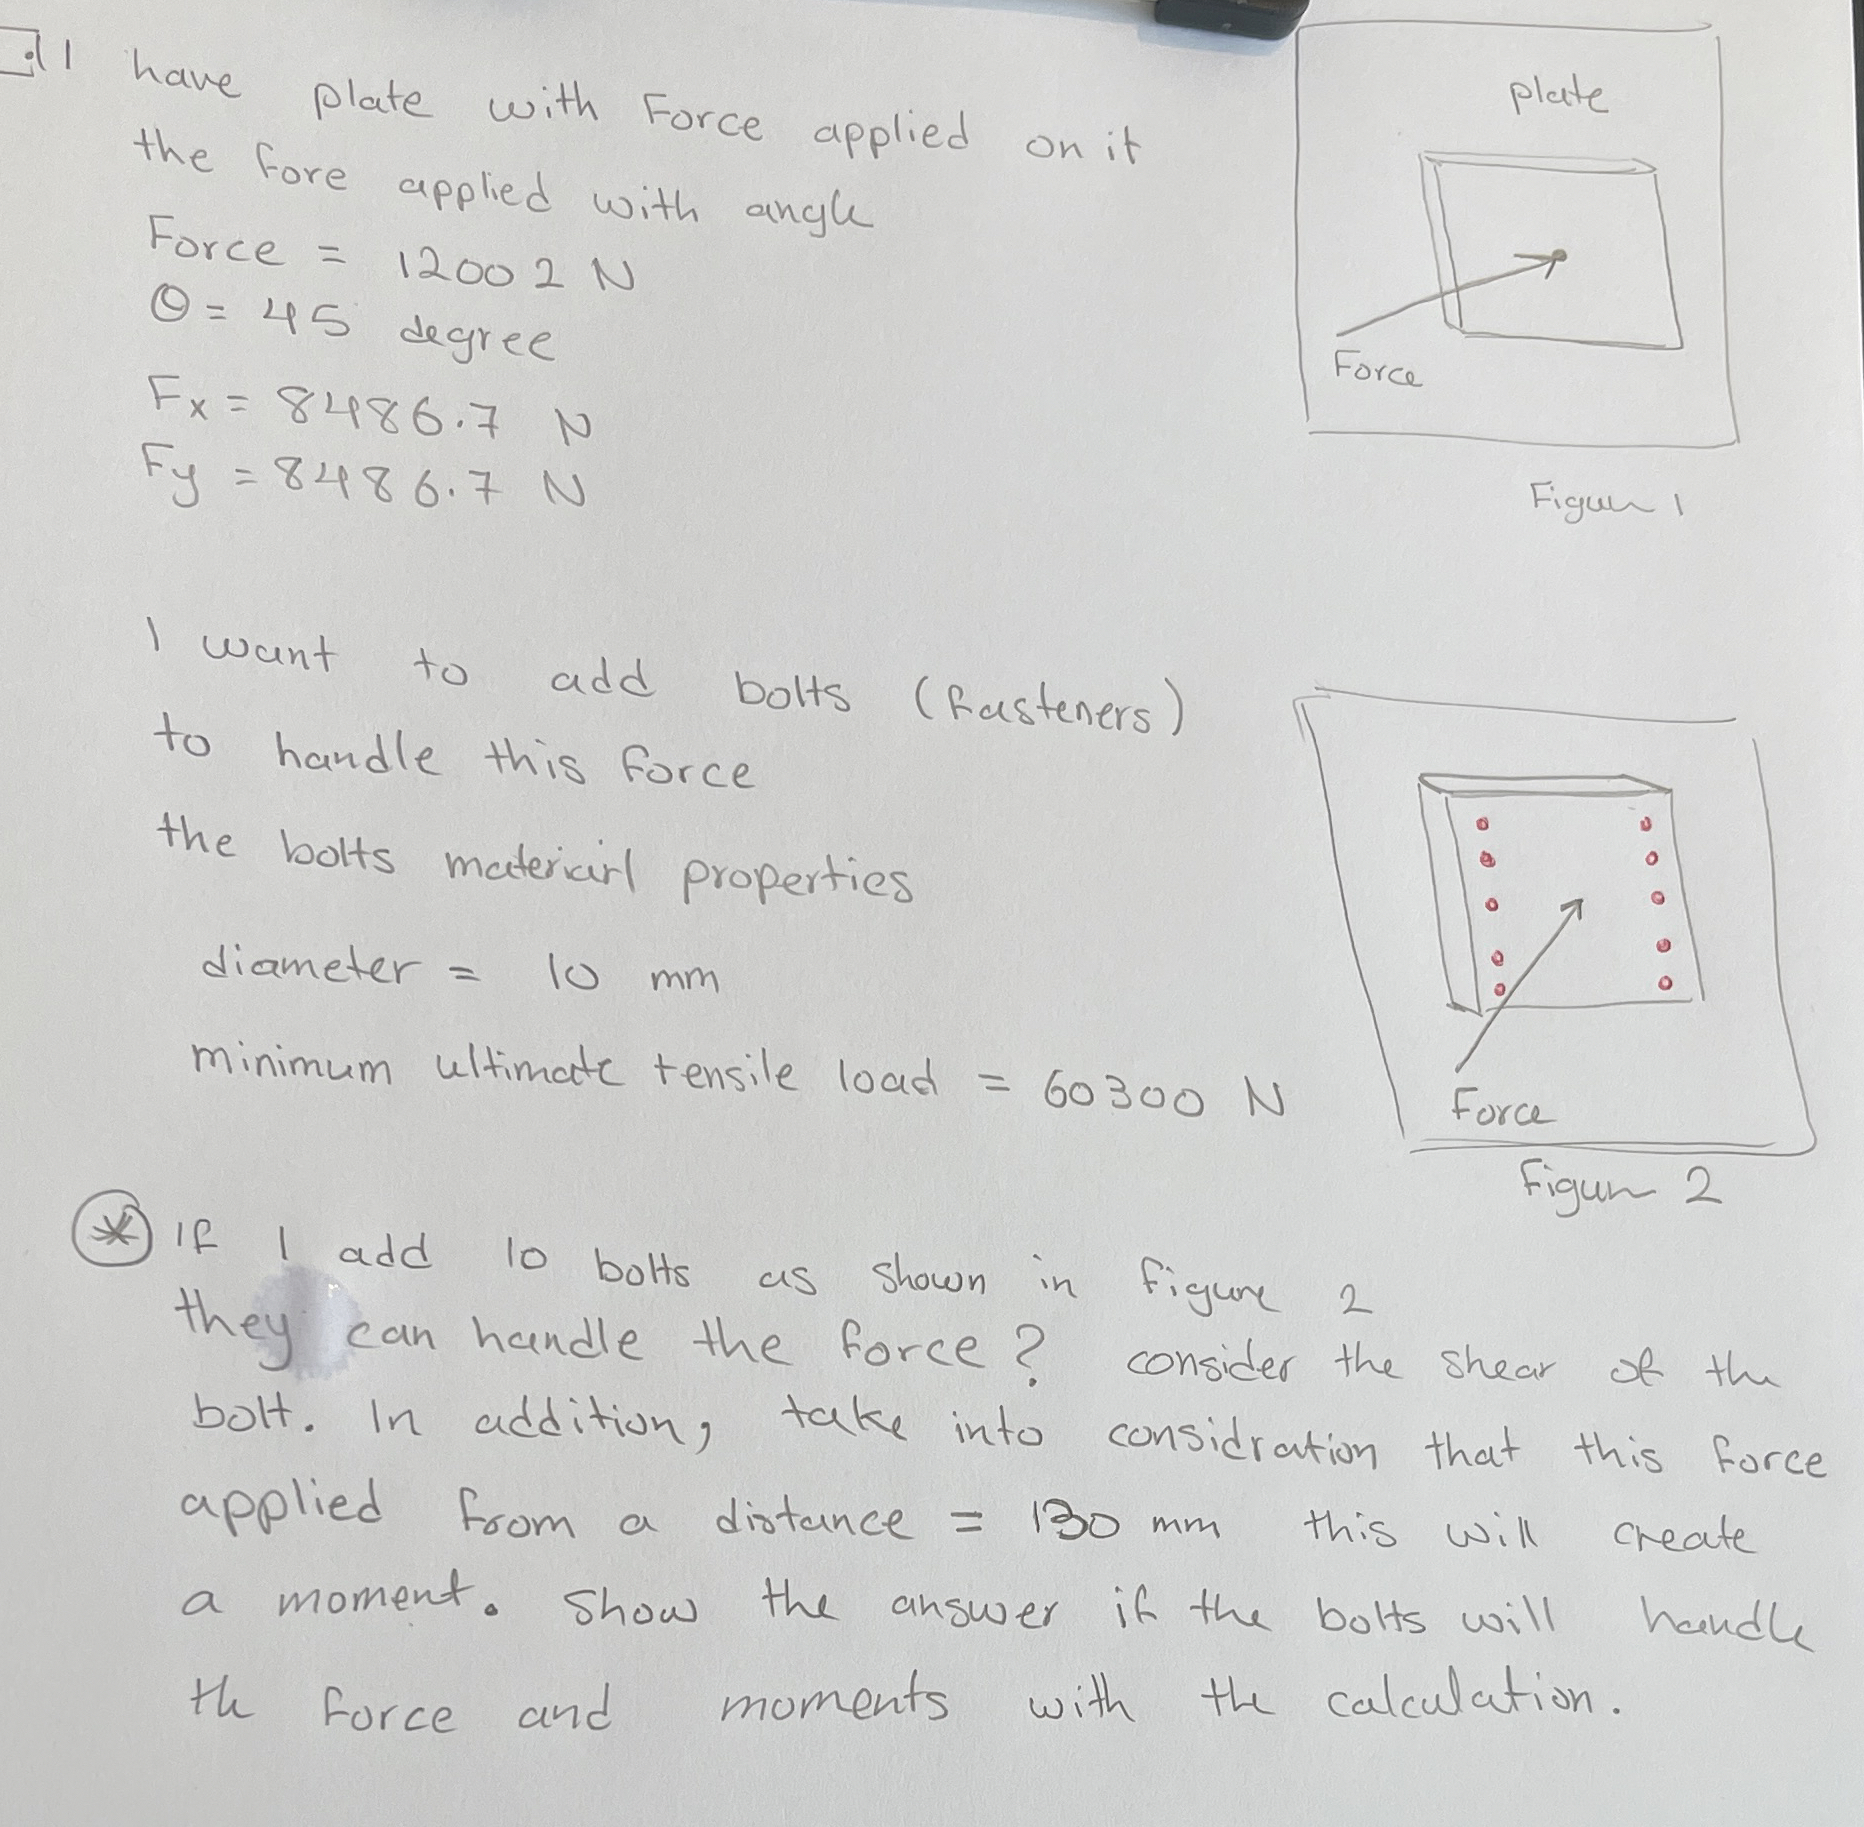 I have plate with Force applied on it
the fore applied with angle
Force = 12002 N
Θ = 45 degree
Fx = 8486.7 N
Fy = 8486.7 N
plate
Force
Figure 1
I want to add bolts (fasteners)
to handle this force
the bolts material properties
diameter = 10 mm
minimum ultimate tensile load = 60300 N
Force
Figure 2
* If I add 10 bolts as shown in figure 2
they can handle the force? consider the shear of the
bolt. In addition, take into considration that this force
applied from a distance = 130 mm this will create
a moment. Show the answer if the bolts will handle
the force and moments with the calculation.